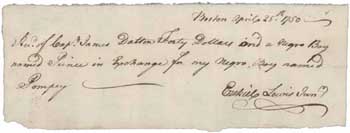 Boston April 25th 1750
Rec'd of Capt James Dalton Forty Dollars and a Negro Boy
named Prince in Exchange for my Negro Boy named
Pompey
Ezekiel Lewis Junr